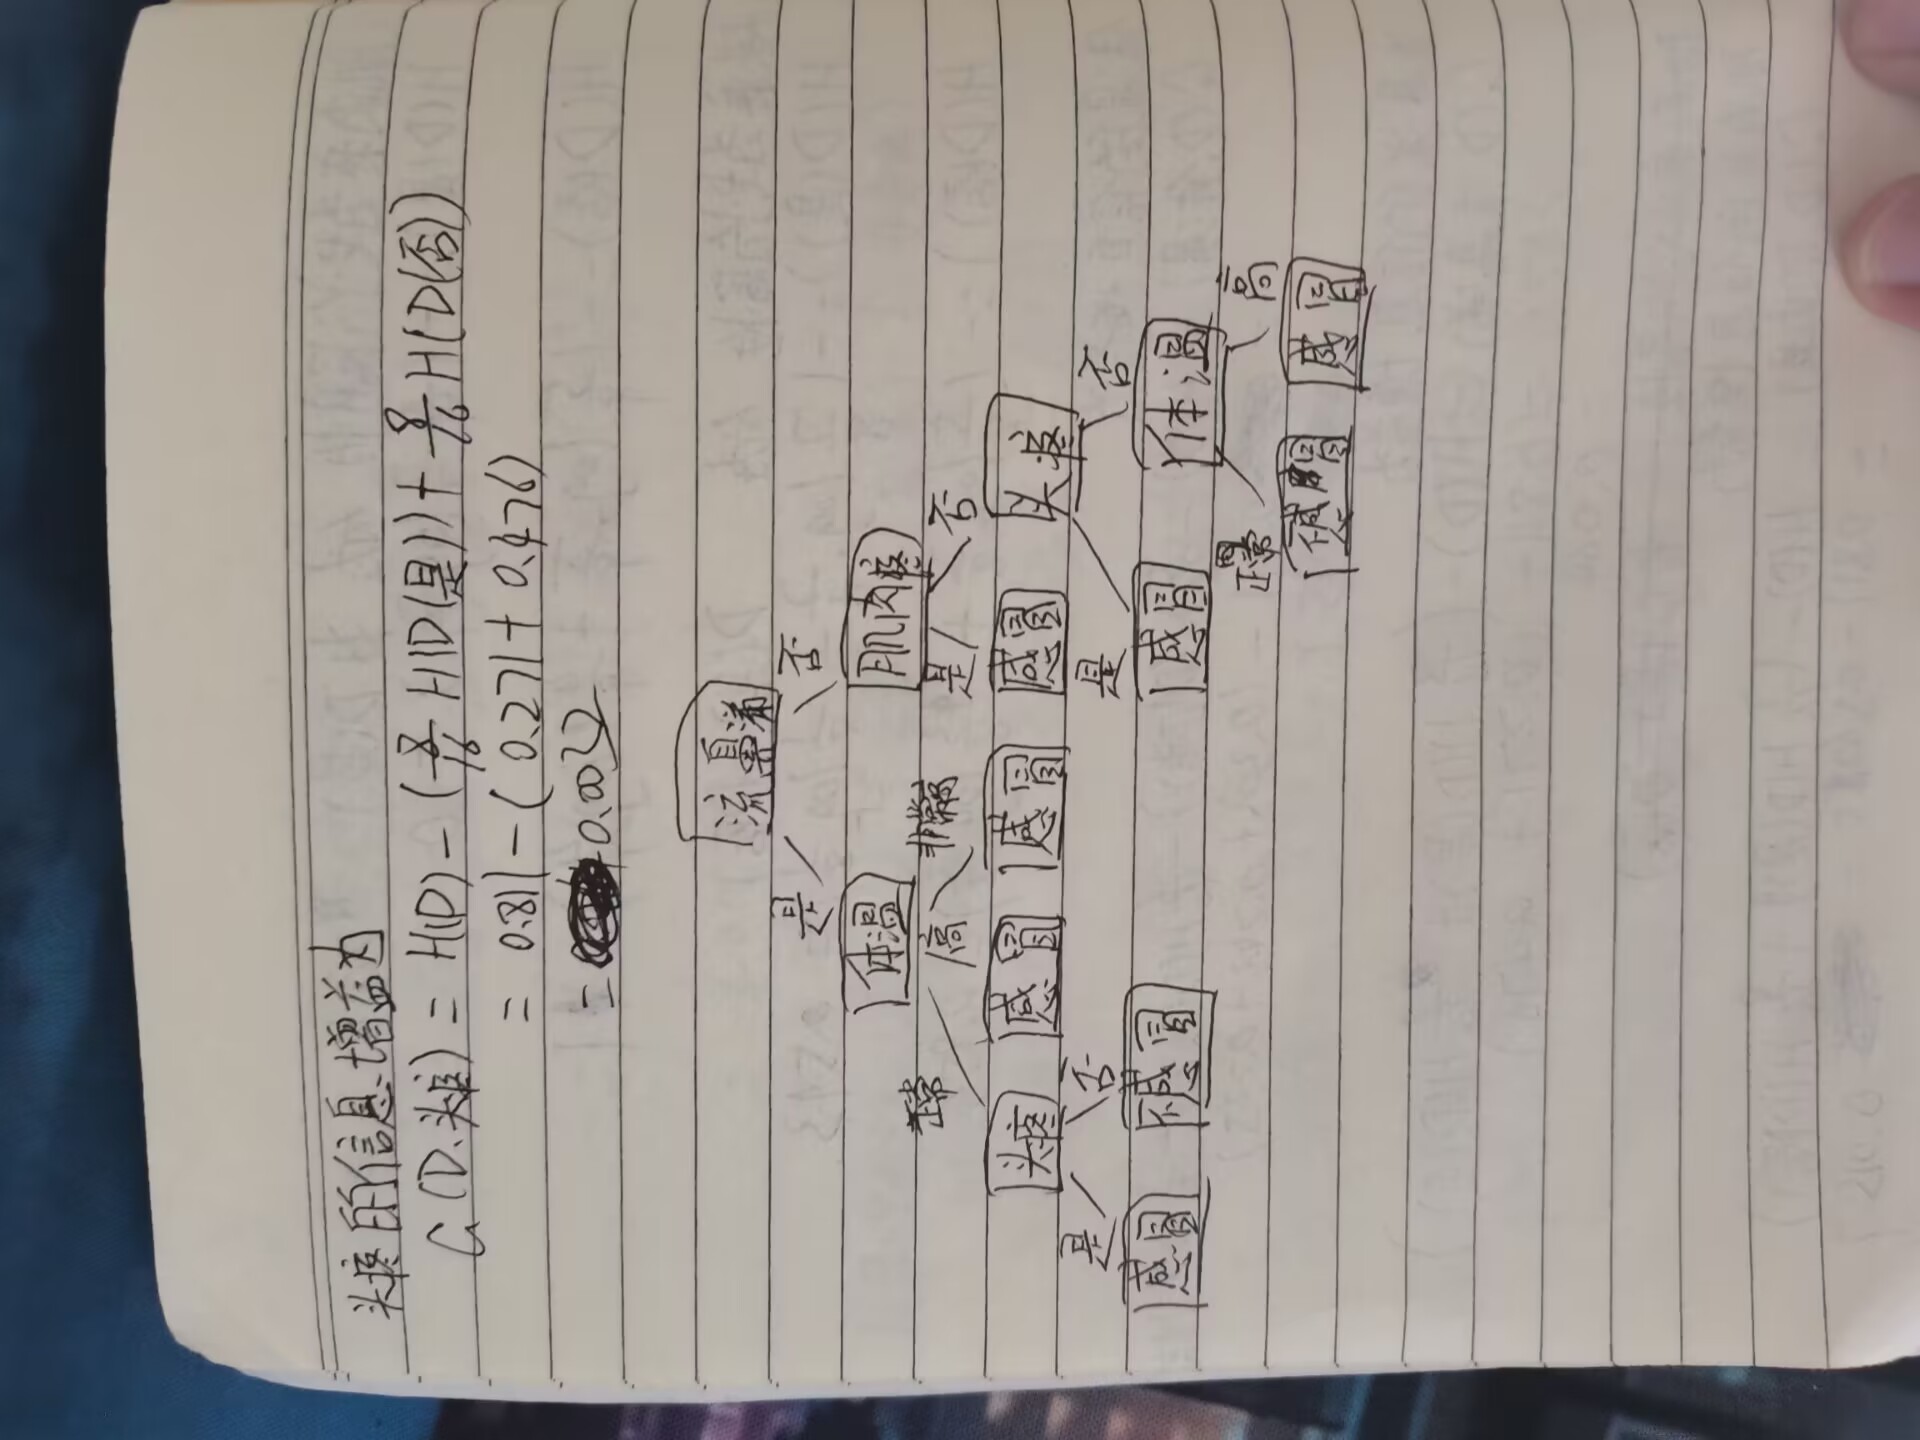 头疼的信息增益为
G(D.头疼) = H(D) - (8/16 H(D(是)) + 8/16 H(D(否))
= 0.811 - (0.271 + 0.476)
=
流鼻涕
是 否
体温 肌肉疼
正常 高 非常高 是 否
头疼 感冒 感冒 感冒 头疼
是 否 是 否
感冒 不感冒 感冒 体温
正常 高
不感冒 感冒